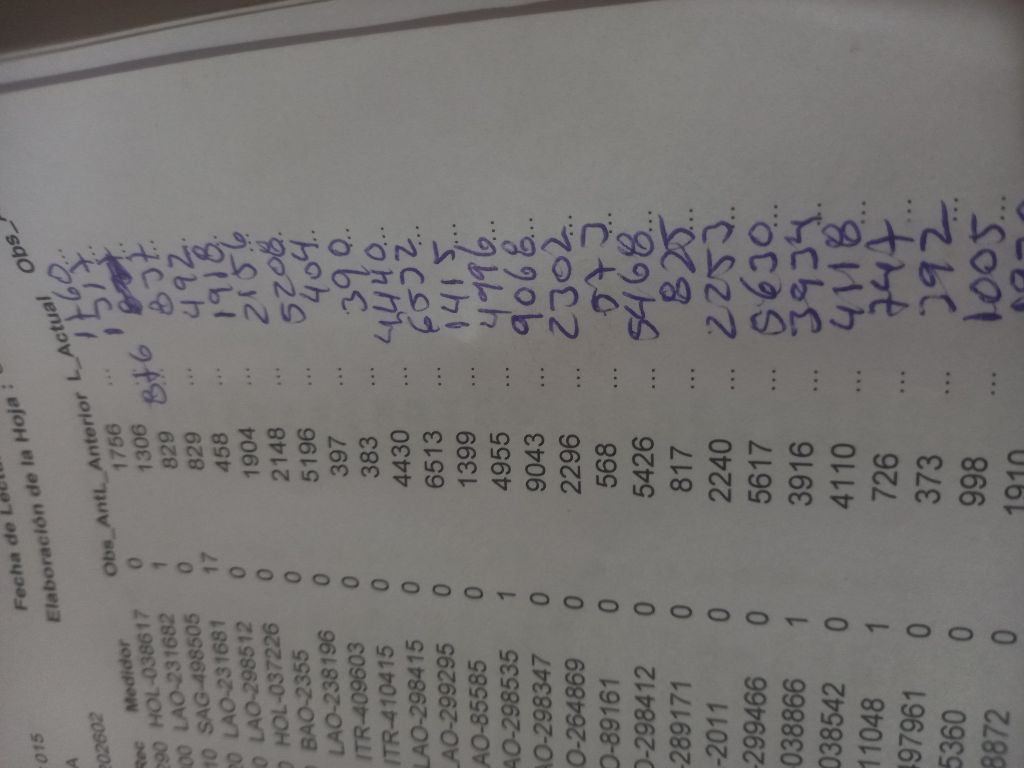 015 Fecha de Lectu
A Elaboración de la Hoja :
202602
Rec Medidor Obs_Ant L_Anterior L_Actual Obs_
290 HOL-038617 0 1756 ... 1760 ...
00 LAO-231682 1 1306 1317 ...
10 SAG-498505 0 829 876
0 LAO-231681 17 829 ... 837 ...
0 LAO-298512 0 458 ... 492 ...
0 HOL-037226 0 1904 ... 1918 ...
BAO-2355 0 2148 ... 2156 ...
LAO-238196 0 5196 ... 5208 ...
ITR-409603 0 397 ... 404 ...
ITR-410415 0 383 ... 390 ...
LAO-298415 0 4430 ... 4440 ...
LAO-299295 0 6513 ... 6532 ...
AO-85585 0 1399 ... 1415 ...
AO-298535 1 4955 ... 4996 ...
O-298347 0 9043 ... 9068 ...
O-264869 0 2296 ... 2302 ...
O-89161 0 568 ... 573 ...
O-298412 0 5426 ... 5468 ...
-289171 0 817 ... 825 ...
-2011 0 2240 ... 2253 ...
-299466 0 5617 ... 5630 ...
038866 1 3916 ... 3934 ...
038542 0 4110 ... 4118 ...
11048 1 726 ... 747 ...
97961 0 373 ... 392 ...
5360 0 998 ... 1005 ...
8872 0 1910